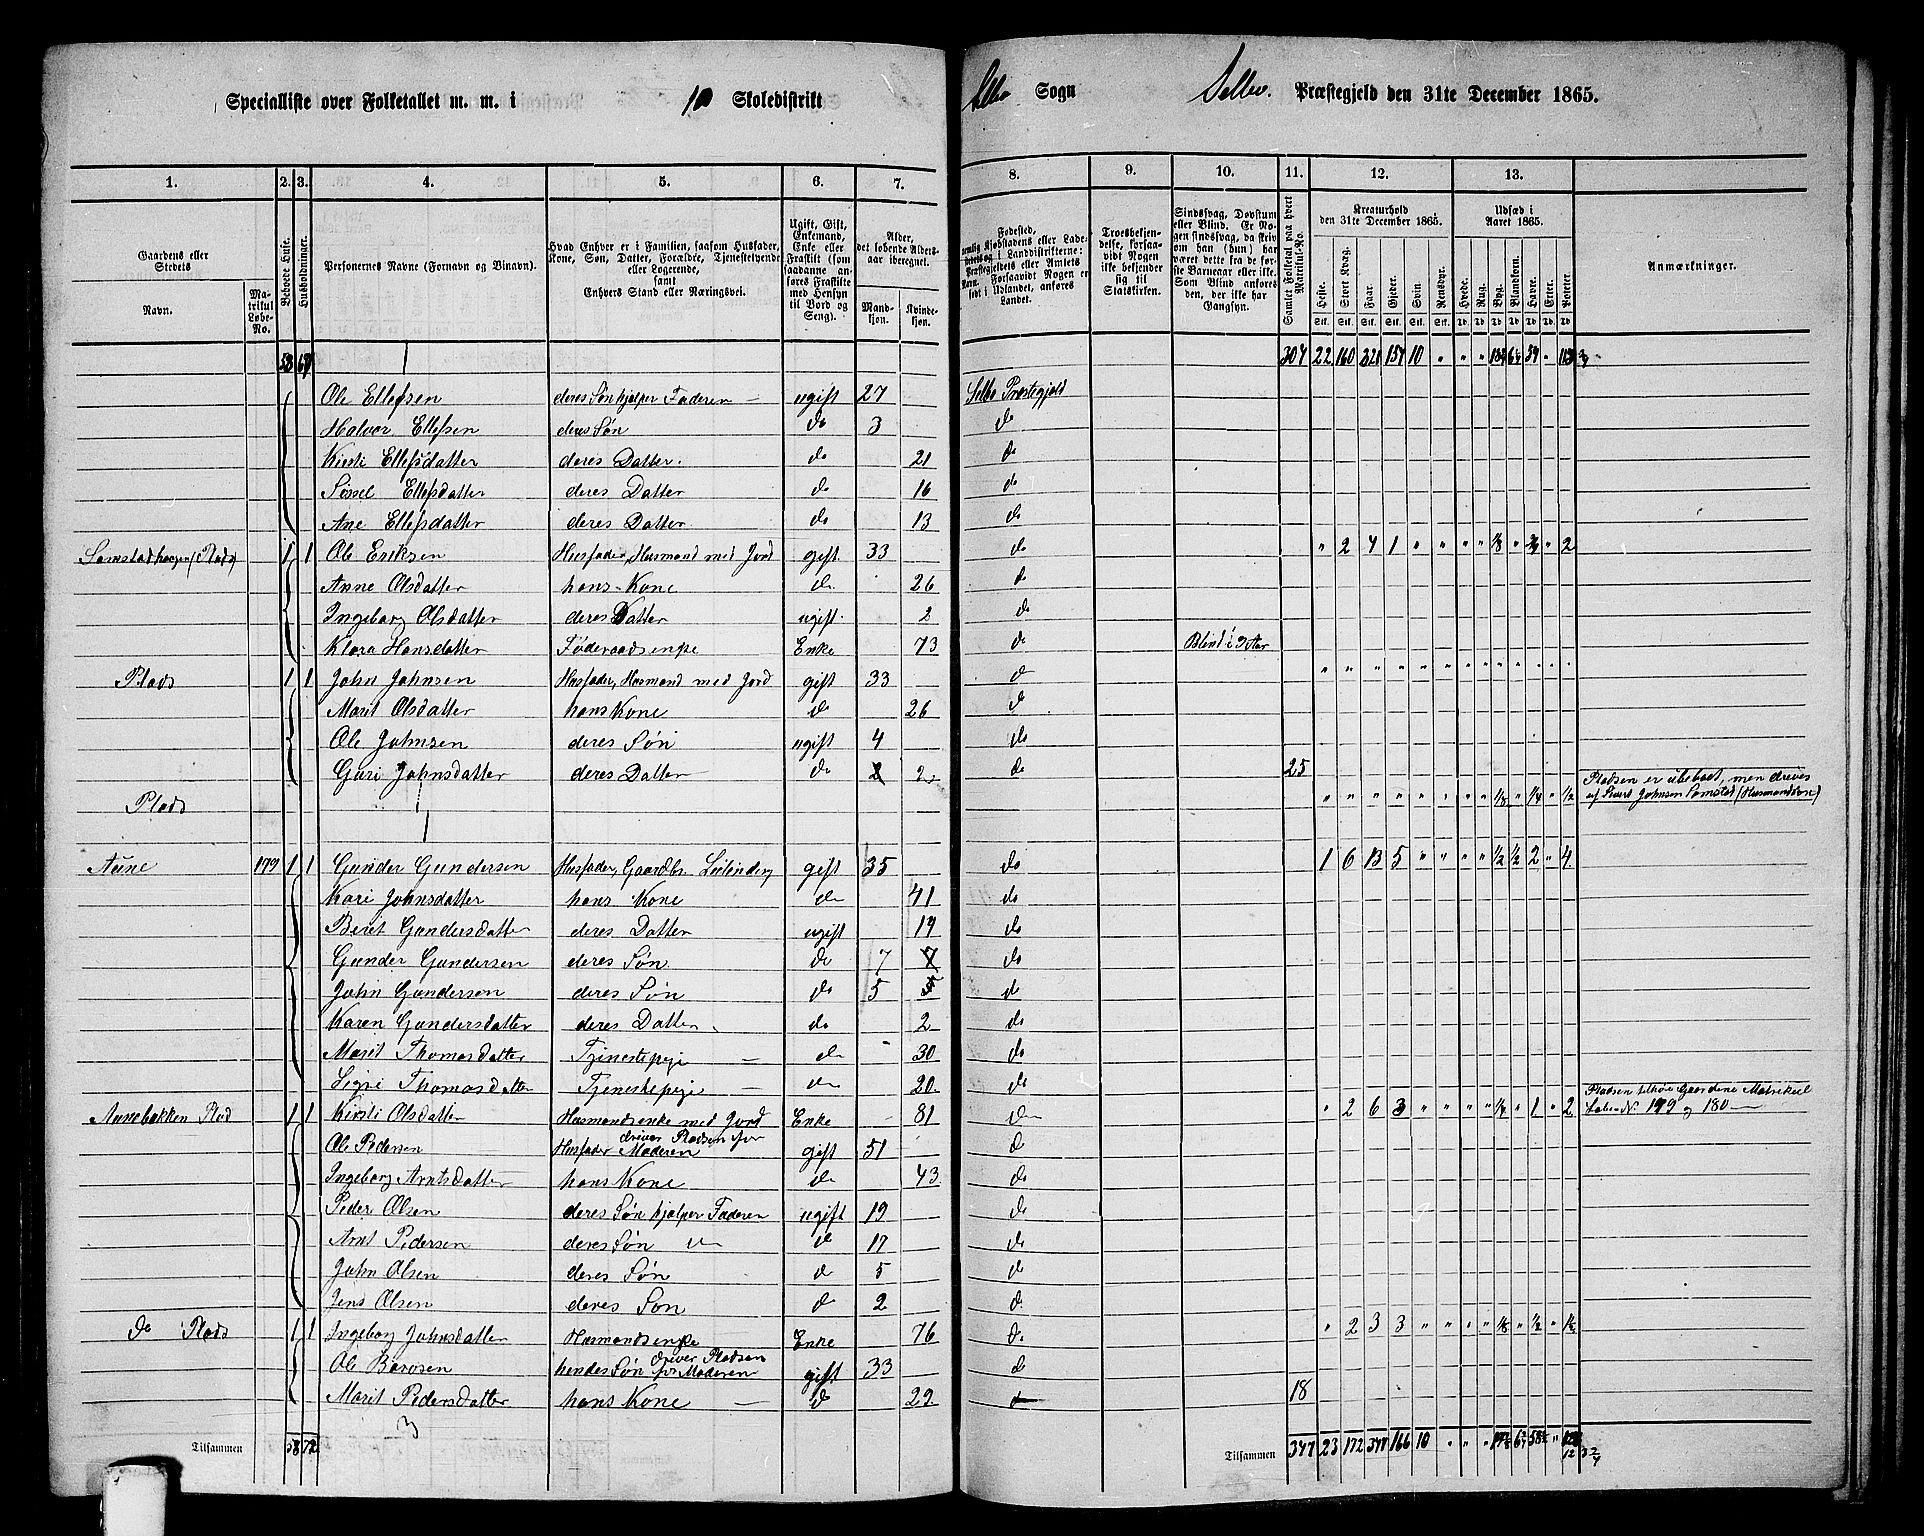 Specialliste over Folketallet m. m. i 10 Skoledistrikt Selbo Sogn Selbo. Præstegjeld den 31te December 1865.
1. 2. 3. 4. 5. 6. 7. 8. 9. 10. 11. 12. 13.
Gaardens eller Stedets Navn. Matrikul Løbe-No. Beboede Huse. Husholdninger. Personernes Navne (Fornavn og Tilnavn). Hvad Enhver er i Familien, saasom Husfader, Kone, Søn, Datter, Forældre, Tjenestetyende eller Logerende, samt Enhvers Stand eller Næringsvei. Ugift, Gift, Enkemand, Enke eller Fraskilt (som saadanne anføres Fraskilte med Hensyn til Bord og Seng). Alder, det løbende Alders-aar iberegnet. Mandkjøn. Kvindekjøn.
Troesbekjendelse, forsaavidt Nogen ikke bekjender sig til Statskirken. Sindssvag, Døvstum eller Blind. Samlet Folketal paa hvert Matricul-No. Kreaturhold den 31te December 1865. Heste. Stort Kvæg. Faar. Gjeder. Svin. Rensdyr. Udsæd i Aaret 1865. Hvede. Rug. Byg. Blandkorn. Havre. Erter. Poteter. Anmærkninger.
307 22 160 321 157 10
Ole Ellefsen deres Søn hjælper Faderen ugift 27 Selbo Præstegjeld
Halvor Ellefsen deres Søn do 3 do
Kirsti Ellefsdatter deres Datter. do 21 do
Sissel Ellefsdatter deres Datter do 16 do
Ane Ellefsdatter deres Datter do 13 do
Somstadhaugen (Plads) 1 1 Ole Eriksen Husfader, Husmand med Jord gift 33 do " 2 4 1 " " " " 1/8 " 3/4 " 2
Anne Olsdatter hans Kone do 26 do
Ingeborg Olsdatter deres Datter ugift 2 do
Klara Hansdatter Føderaadsenke Enke 73 do Blind i 9 Aar
Plads 1 1 John Johnsen Husfader, Husmand med Jord gift 33 do
Marit Olsdatter hans Kone do 26 do
Ole Johnsen deres Søn ugift 4 do
Guri Johnsdatter deres Datter do 2 do 25
Plads " " " " " " " " 1/8 " 1/4 " 1/2 Pladsen er ubeboet, men drives af Sivert Johnsen Somstad (Husmandssøn)
Aune 179 1 1 Gunder Gundersen Husfader, Gaardbr. Leilending gift 35 do 1 6 13 5 " " " " 1/2 1/2 2 " 4
Kari Johnsdatter hans Kone do 41 do
Berit Gundersdatter deres Datter ugift 19 do
Gunder Gundersen deres Søn do 7 do
John Gundersen deres Søn do 5 do
Karen Gundersdatter deres Datter do 2 do
Marit Thomasdatter Tjenestepige do 30 do
Sigri Thomasdatter Tjenestepige do 20 do
Aunebakken Plad 1 1 Kirsti Olsdatter Husmandsenke med Jord Enke 81 do " 2 6 3 " " " " 1/8 " 1 " 2 Pladsen tilhører Gaardene Matrikul Løbe No 179 og 180
Ole Pedersen Husfader driver Pladsen for Moderen gift 51 do
Ingeborg Arntsdatter hans Kone do 43 do
Peder Olsen deres Søn hjælper Faderen ugift 19 do
Arnt Pedersen deres Søn do do 17 do
John Olsen deres Søn do 5 do
Jens Olsen deres Søn do 2 do
do Plads 1 1 Ingeborg Johnsdatter Husmandsenke Enke 76 do " 2 3 3 " " " " 1/8 " 1/2 " 1 1/2
Ole Barosen hendes Søn driver Pladsen for Moderen gift 33 do
Marit Pedersdatter hans Kone do 29 do 18
3
Tilsammen 58 72 Tilsammen 347 23 172 347 166 10